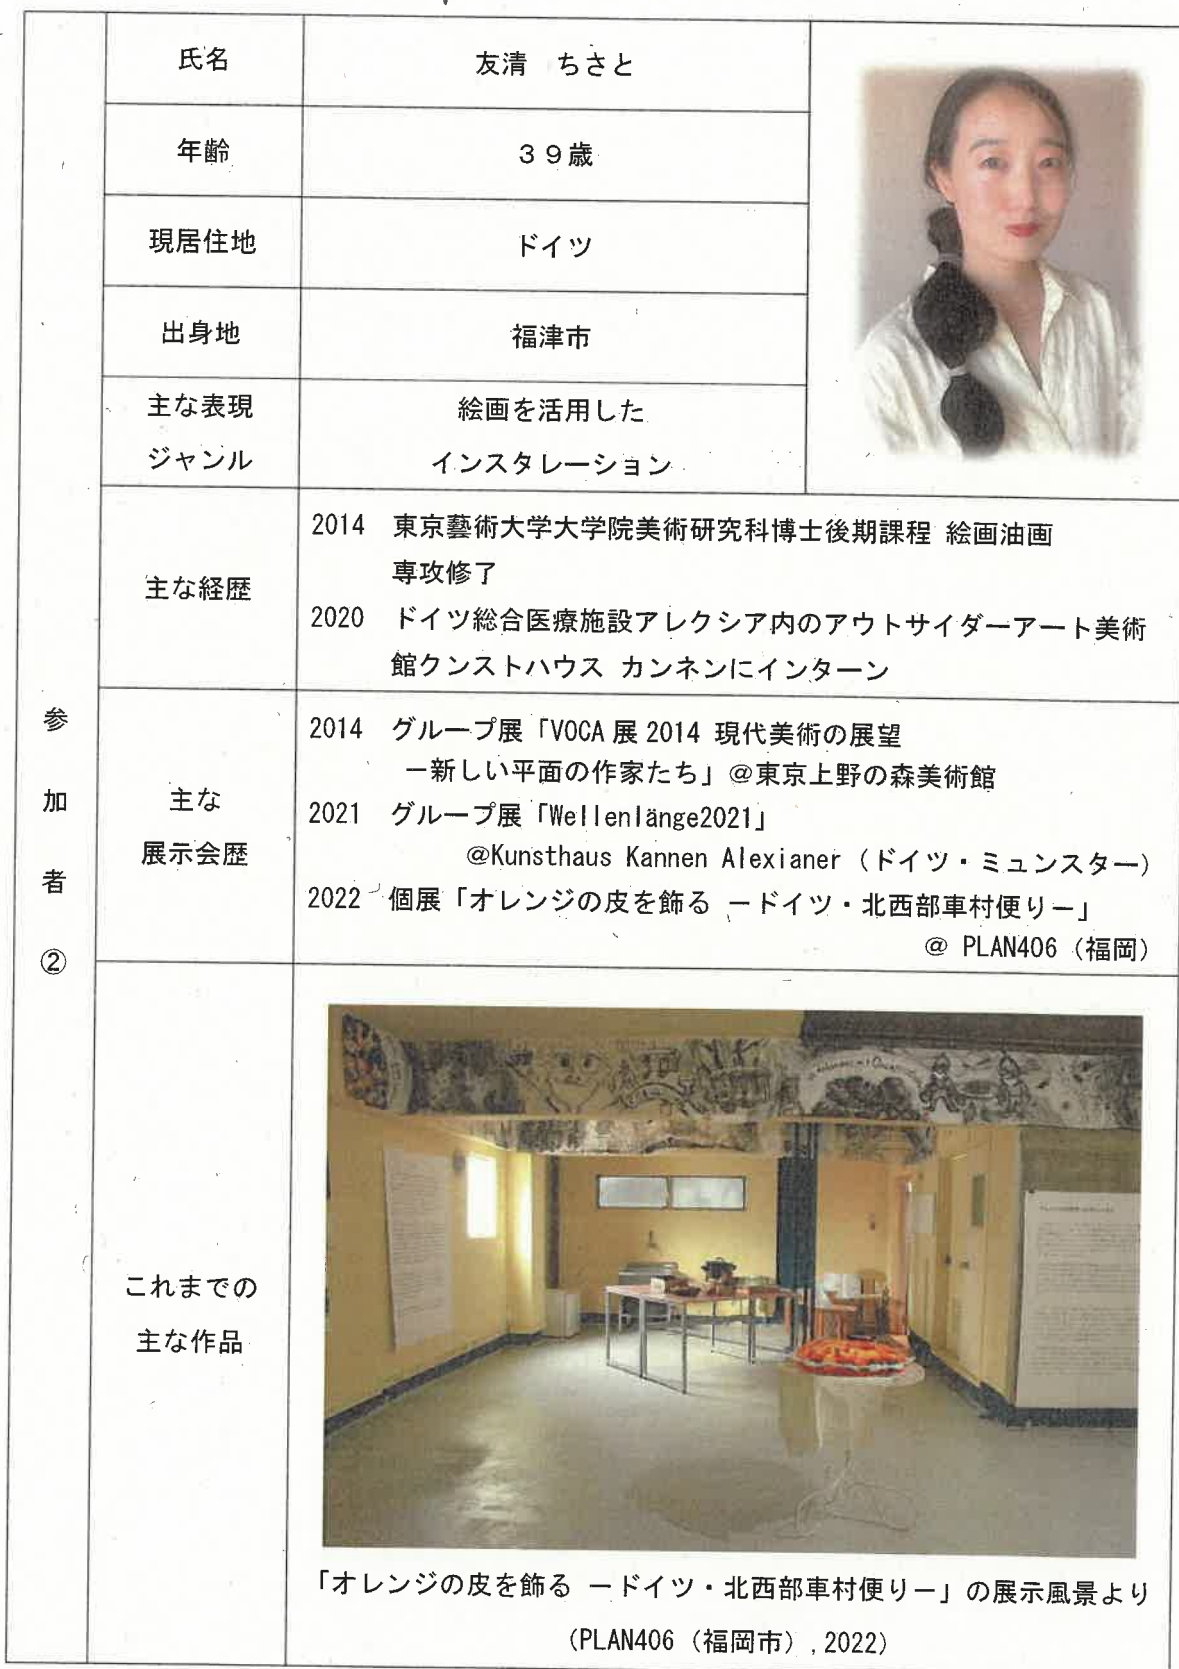 参加者②
氏名
友清　ちさと
年齢
３９歳
現居住地
ドイツ
出身地
福津市
主な表現
ジャンル
絵画を活用した
インスタレーション
主な経歴
2014　東京藝術大学大学院美術研究科博士後期課程 絵画油画
専攻修了
2020　ドイツ総合医療施設アレクシア内のアウトサイダーアート美術
館クンストハウス カンネンにインターン
主な
展示会歴
2014　グループ展「VOCA 展 2014 現代美術の展望
－新しい平面の作家たち」@東京上野の森美術館
2021　グループ展「Wellenlänge2021」
@Kunsthaus Kannen Alexianer（ドイツ・ミュンスター）
2022　個展「オレンジの皮を飾る －ドイツ・北西部車村便り－」
@ PLAN406（福岡）
これまでの
主な作品
「オレンジの皮を飾る －ドイツ・北西部車村便り－」の展示風景より
(PLAN406（福岡市）, 2022)